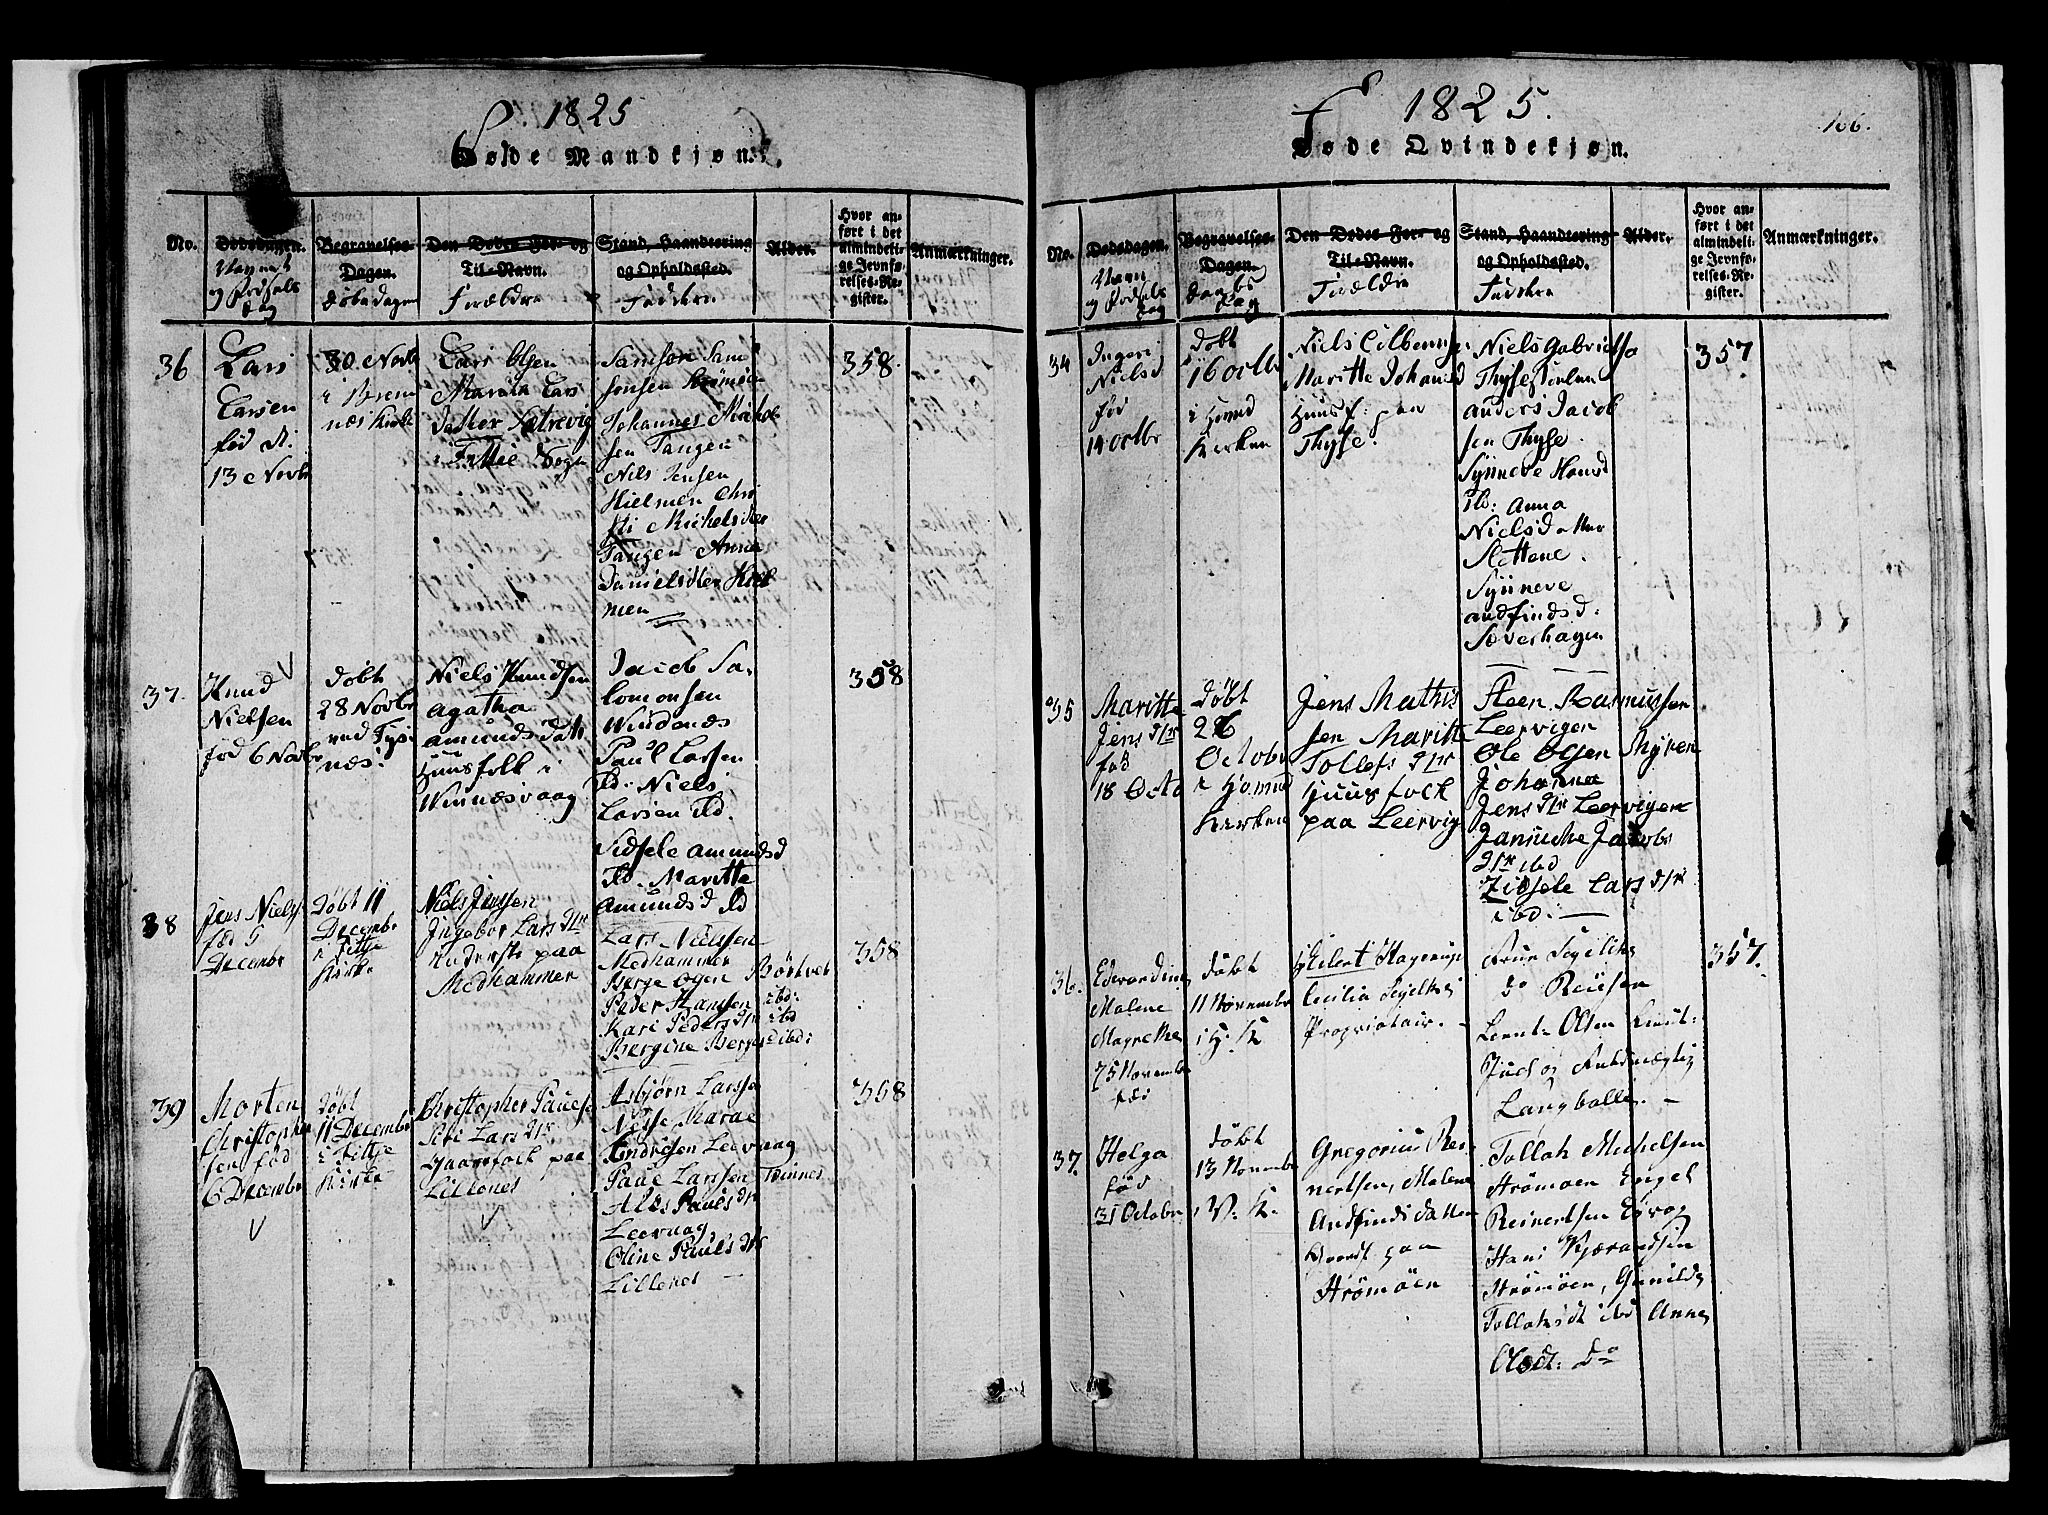 1825
Døde Mandkjøn.
No.
Dødsdagen.
Navnet
og Fødsels
Dag
Begravelses-
Dagen.
Døbedagen
Den Dødes For- og
Til-Navn.
Forældre
Stand, Haandtering
og Opholdssted.
Faddere
Alder.
Hvor an-
ført i det
almindeli-
ge Jevnfø-
relses-Re-
gister.
Anmærkninger.
36
Lars
Larsen
fød d.
13 Novbr
30 Novbr
i Brem
næs Kirke
Lars Olsen
Marita Lars
Datter
i Fittie Sogn
Samson Sam
sonsen Strømøen
Johannes Michels
sen Tangen
Nils Jensen
Hielmen Chri
sti Michelsdter
Tangen Anna
Danielsdter Hiel
men
358
37.
Knud
Nielsen
fød 6 Novbr
døbt
28 Novbr
ved Tys
næs
Niels Knudsen
Agatha
Amunds Datt
Huusfolk i
Winnæsvaag
Jacob Sa-
lomonsen
Windenæs
Paul Larsen
ibd: Niels
Larsen ibd.
Sidsele Amundsd
ibd. Maritte
Amundsd ibd
358
38
Jens Niels
fød 5
Decembr
Døbt 11
Decembr
i Fittje
Kirke
Niels Jenssen
Ingebor Lars Dtr
Inderste paa
Medhammer
Lars Nielssen
Medhammer
Børge Ogen Børtvet
Peder Hansen ibd:
Kari Peders Dtr ibd
Bergine Berges d ibd:
358
39
Morten
Christopher
sen fød
6 Decembr
Døbt
11 Decembr
i Fittje
Kirke
Christopher Paulse
Siri Lars Dtr
Gaardfolk paa
Lillenes
Asbjørn Larssen
Nesse Marae
Andresen Leervaag
Paul Larssen Winnes
Ales Pauls dtr
Leervaag
Oline Pauls dtr
Lillenes
358
1825.
106.
Døde Qvindekjøn.
No.
Dødsdagen.
Navn
og Fødsels
Dag
Begravelses-
Dagen.
Daabs
Dag
Den Dødes For- og
Til-Navn.
Forældre
Stand, Haandtering
og Opholdssted.
Faddere
Alder.
Hvor an-
ført i det
almindeli-
ge Jevnfø-
relses-Re-
gister.
Anmærkninger.
34
Ingeri
Nielsd
fød
14 Octbr
døbt
16 Octbr
i
Kirken
Niels
Maritte Johansd
Huusf: paa
Thyse
Niels Gabrielse
Anders Jacob
sen Thyse
Synneve Hansd
ibd: Anna
Nielsdatter
Slettene.
Synneve
Andfindsd:
Sæverhagen
357
35
Maritte
Jens Dtr
fød
18 Octo
Døbt
26
Octobr
i
Kirken
Jens Mathis
sen Maritte
Tollefs Dtr
Huusfock
paa Leervig
Steen Rasmussen
Leervigen
Ole Olsen Myren
Johanna
Jens Dtr Leervigen
Jannicke Jacobs
Dtr ibd
Zidsele Lars dtr
ibd:
36.
Edvardine
Malene
Magrethe
Novembr
fød
døbt
11 Novembr
i H. K
Eilert Hagerup
Cecilia
Proprietair.
Frue
do
Leut. Olsen
Langballe.
357.
37.
Helga
fød
31 Octobr
døbt
13 Novembr
Gregorius Rei-
nertsen, Malene
Andfindsdatter
paa
Strømøen
Tollak Michelsen
Strømøen Engel
Reinertsen
Hans
Strømøen, Gunilda
Tollaksdt ibd Anna
Olsd: do